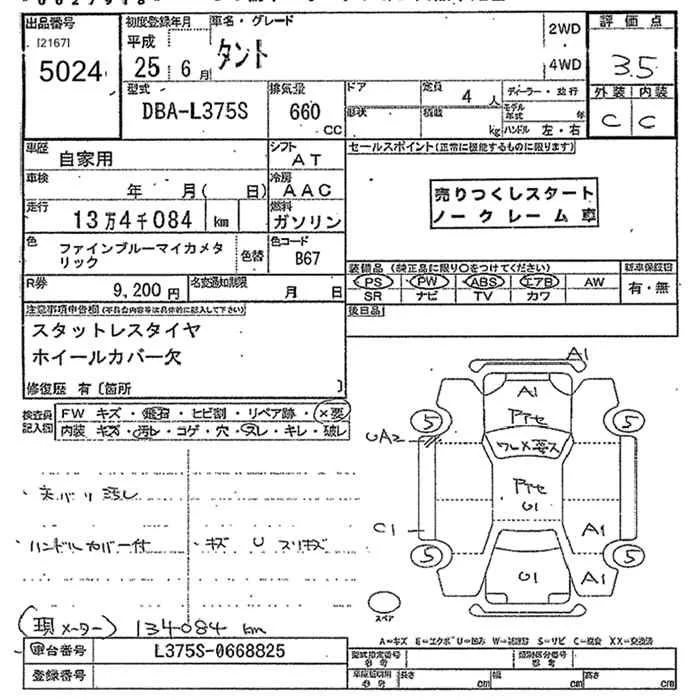 出品番号
[2167]
5024
初度登録年月
平成
25 6月
車名・グレード
タント
2WD
4WD
評価点
3.5
外装 内装
C C
型式
DBA-L375S
排気量
660
CC
ドア
形状
定員
4 人
積載
kg
ディーラー・並行
モデル年式 年
ハンドル 左・右
車歴
自家用
シフト
AT
車検
年 月( 日)
冷房
AAC
走行
13万4千084 km
燃料
ガソリン
色
ファインブルーマイカメタリック
色替
色コード
B67
R券
9,200円
名変通知期限
月 日
セールスポイント(正常に機能するものに限ります)
売りつくしスタート
ノークレーム車
装備品(純正品に限り○をつけてください)
PS PW ABS エアB AW
SR ナビ TV カワ
新車保証書
有・無
後日品
注意事項申告欄(不具合内容は具体的に記入して下さい)
スタットレスタイヤ
ホイールカバー欠
修復歴 有〔箇所 〕
検査員記入欄
FW キズ・飛石・ヒビ割・リペア跡・×要
内装 キズ・汚レ・コゲ・穴・スレ・キレ・破レ
天バリ汚レ
ハンドルカバー付
・キズ U スリキズ
(現メーター) 134084 km
A1
A1
5 5
UA2
ワレ×要ス
U1
C1
A1
5 5
U1
A1
スペア
A=キズ E=エクボ U=凹み W=補修跡 S=サビ C=腐食 XX=交換済
車台番号
L375S-0668825
登録番号
型式指定番号
類別区分番号
長さ cm
幅 cm
高さ cm